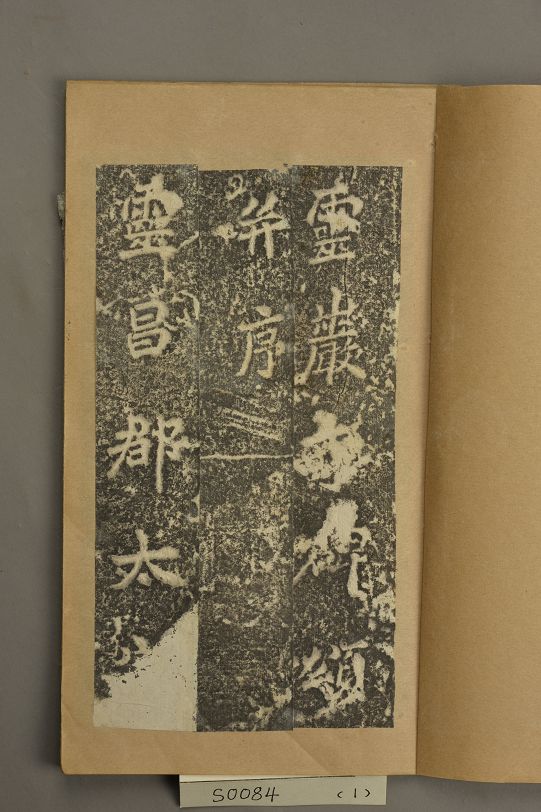 靈巖寺碑頌
并序
靈昌郡太
S0084 (1)